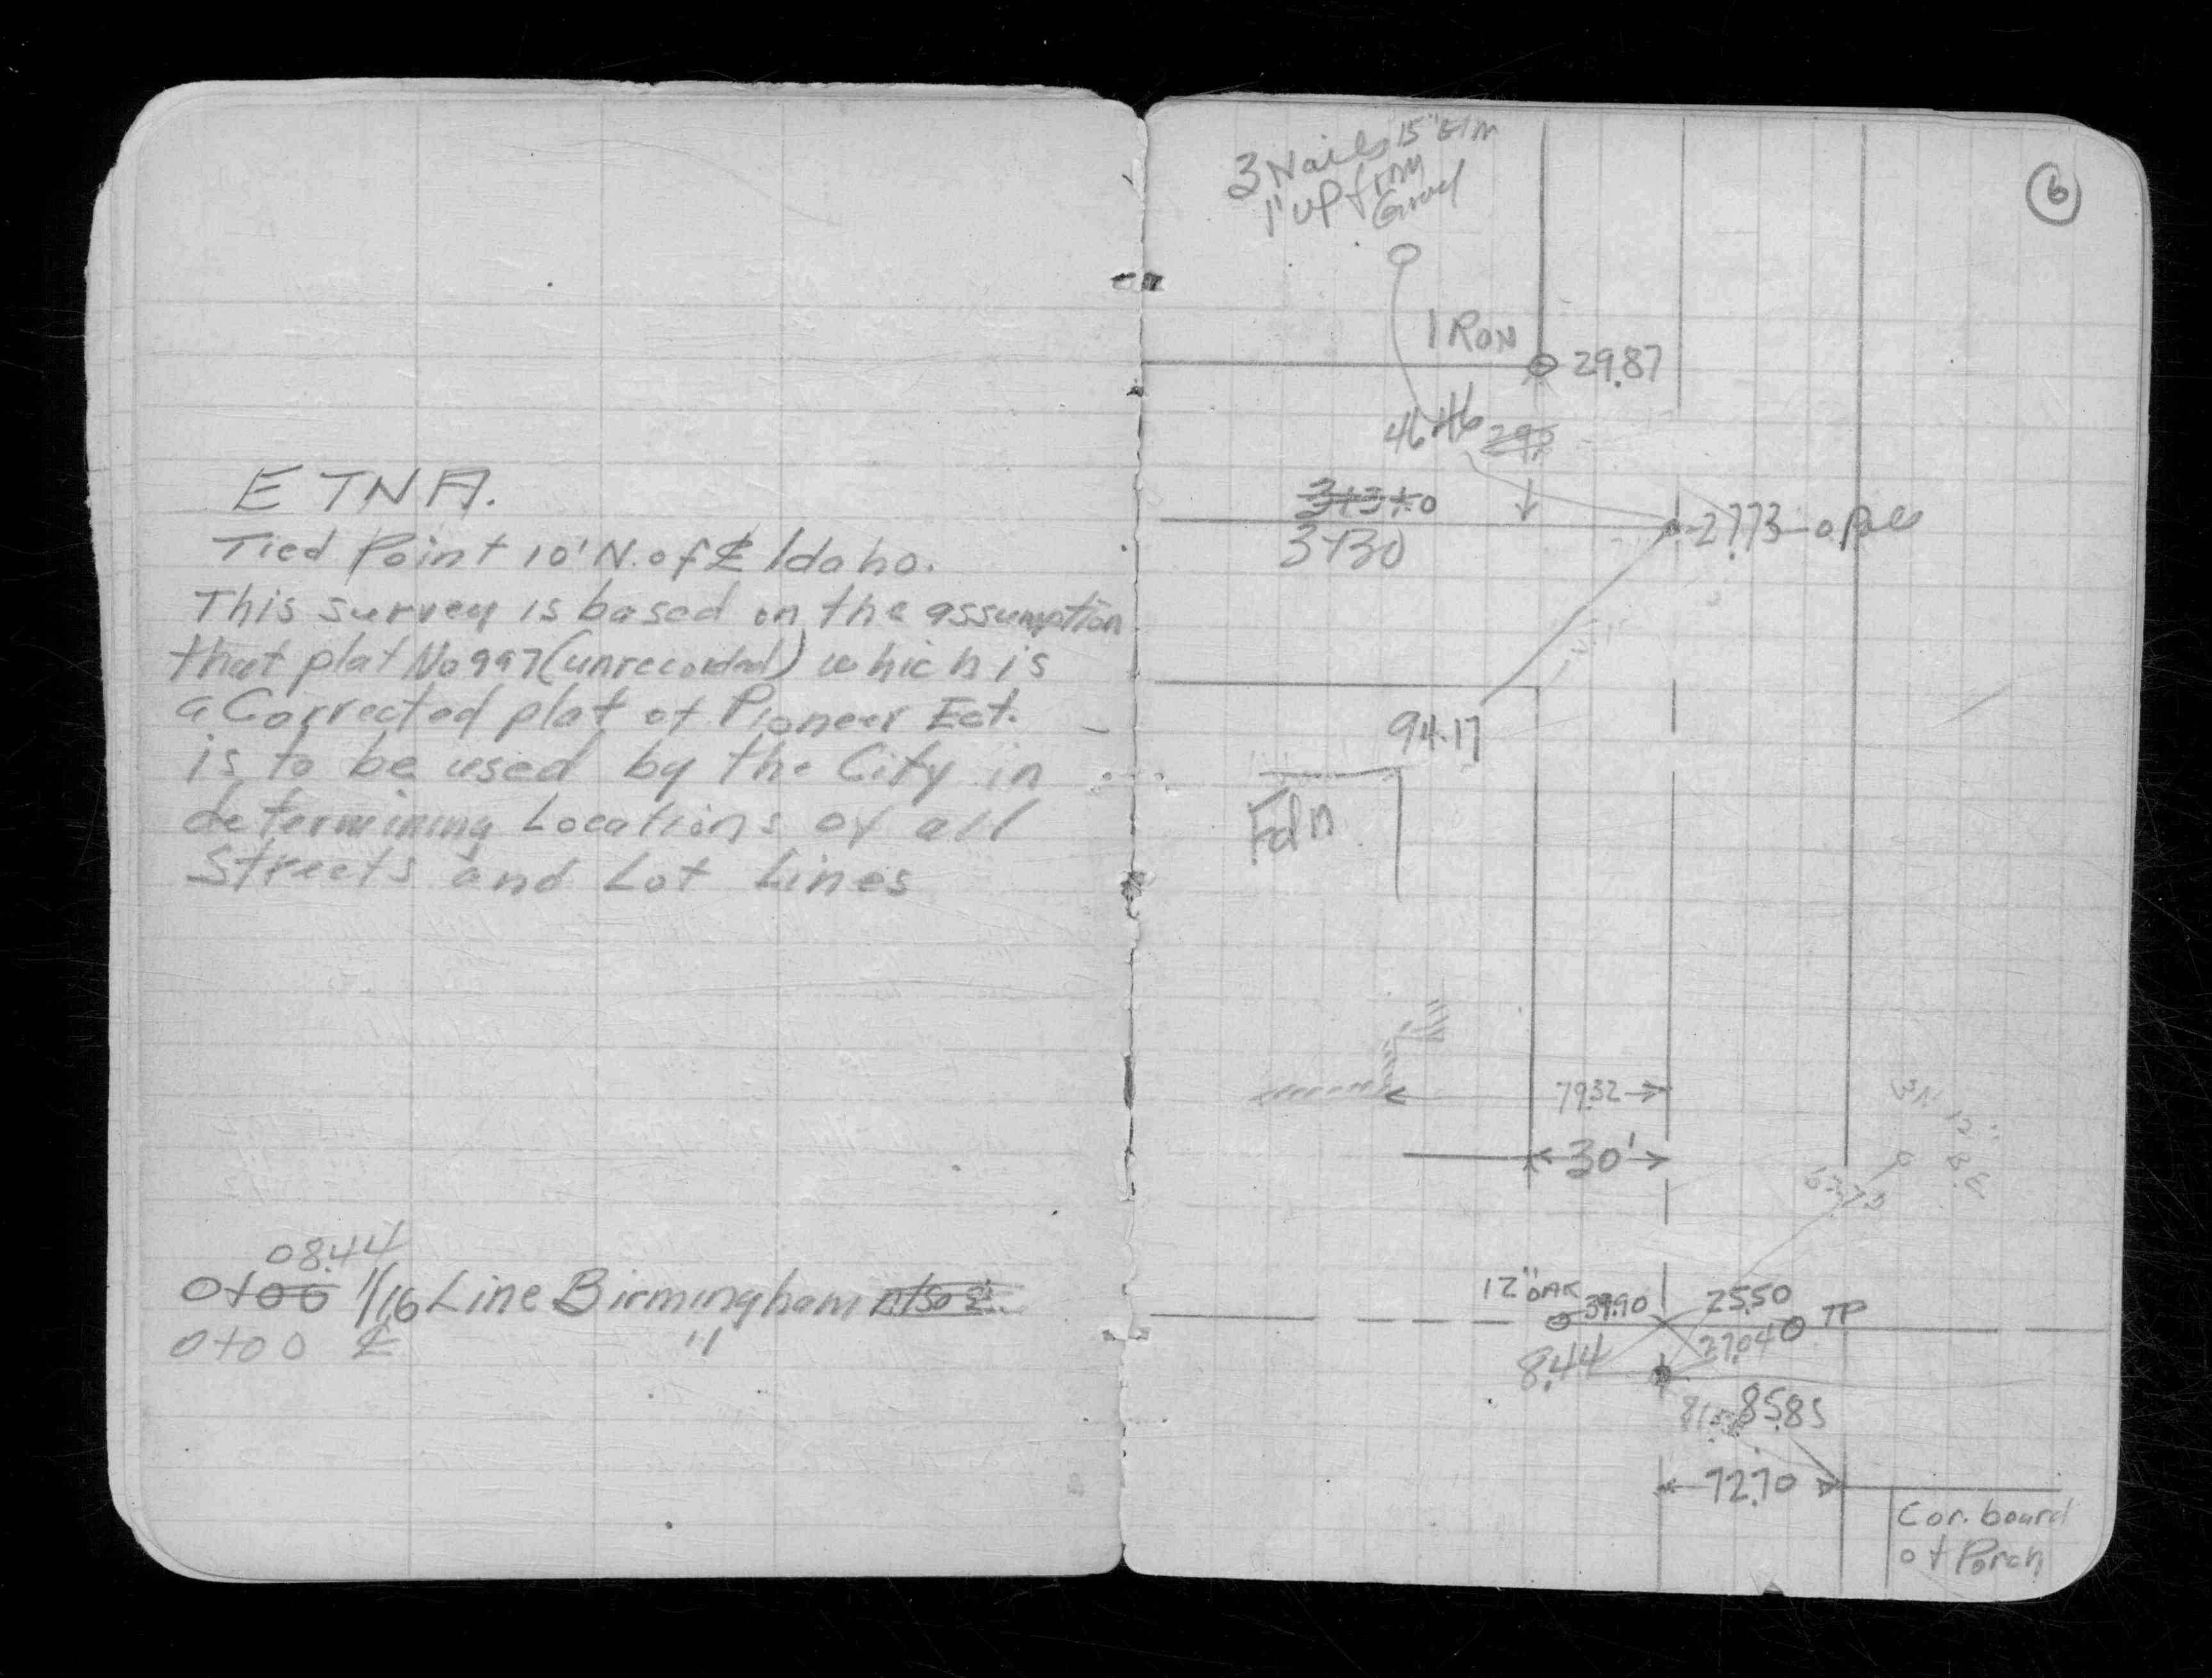 ETNA.
Tied Point 10' N. of ℄ Idaho.
This survey is based on the assumption
that plat No 997 (unrecorded) which is
a Corrected plat of Pioneer Est.
is to be used by the City in
determining Locations of all
Streets and Lot Lines
08.44
0+00 1/16 Line Birmingham
0+00 ℄ "
6
3 Nails 15" Elm
1' up from
Grnd
IRON
29.87
46.46 29.
3+3+0
3+30
27.73 Pole
94.17
Fdn
79.32
30'
63.73
12" OAK 39.90
25.50
TP
27.04
8.44
85.85
72.70
Cor. board
of Porch